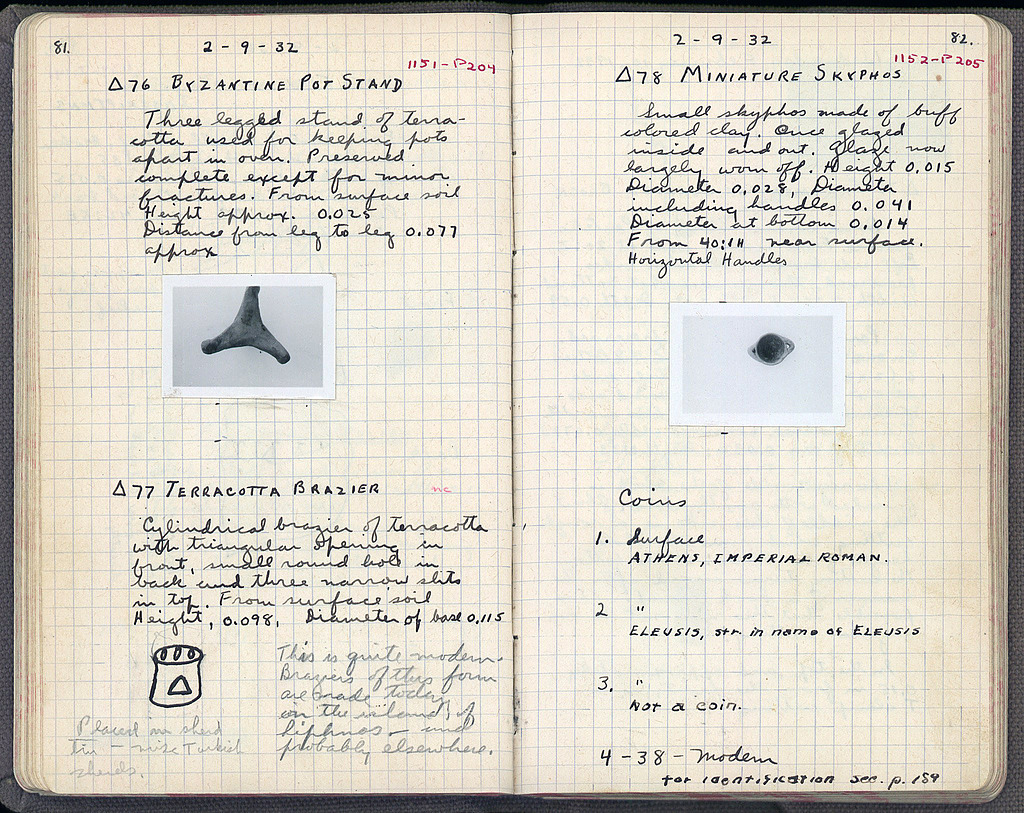 81.
2-9-32
1151-P204
Δ76 BYZANTINE POT STAND
Three legged stand of terra-
cotta used for keeping pots
apart in oven. Preserved
complete except for minor
fractures. From surface soil
Height approx. 0.025
Distance from leg to leg 0.077
approx
Δ77 TERRACOTTA BRAZIER
nc
Cylindrical brazier of terracotta
with triangular opening in
front, small round hole in
back and three narrow slits
in top. From surface soil
Height, 0.098, Diameter of base 0.115
This is quite modern.
Braziers of this form
are made today
on the island of
Siphnos – and
probably elsewhere.
Placed in shed
tin – with Turkish
sherds.
82.
2-9-32
1152-P205
Δ78 MINIATURE SKYPHOS
Small skyphos made of buff
colored clay. Once glazed
inside and out. Glaze now
largely worn off. Height 0.015
Diameter 0.028, Diameter
including handles 0.041
Diameter at bottom 0.014
From 40:1H near surface.
Horizontal Handles
Coins
1. Surface
ATHENS, IMPERIAL ROMAN.
2 "
ELEUSIS, str. in name of ELEUSIS
3. "
Not a coin.
4-38 - Modern
for identification see p. 189